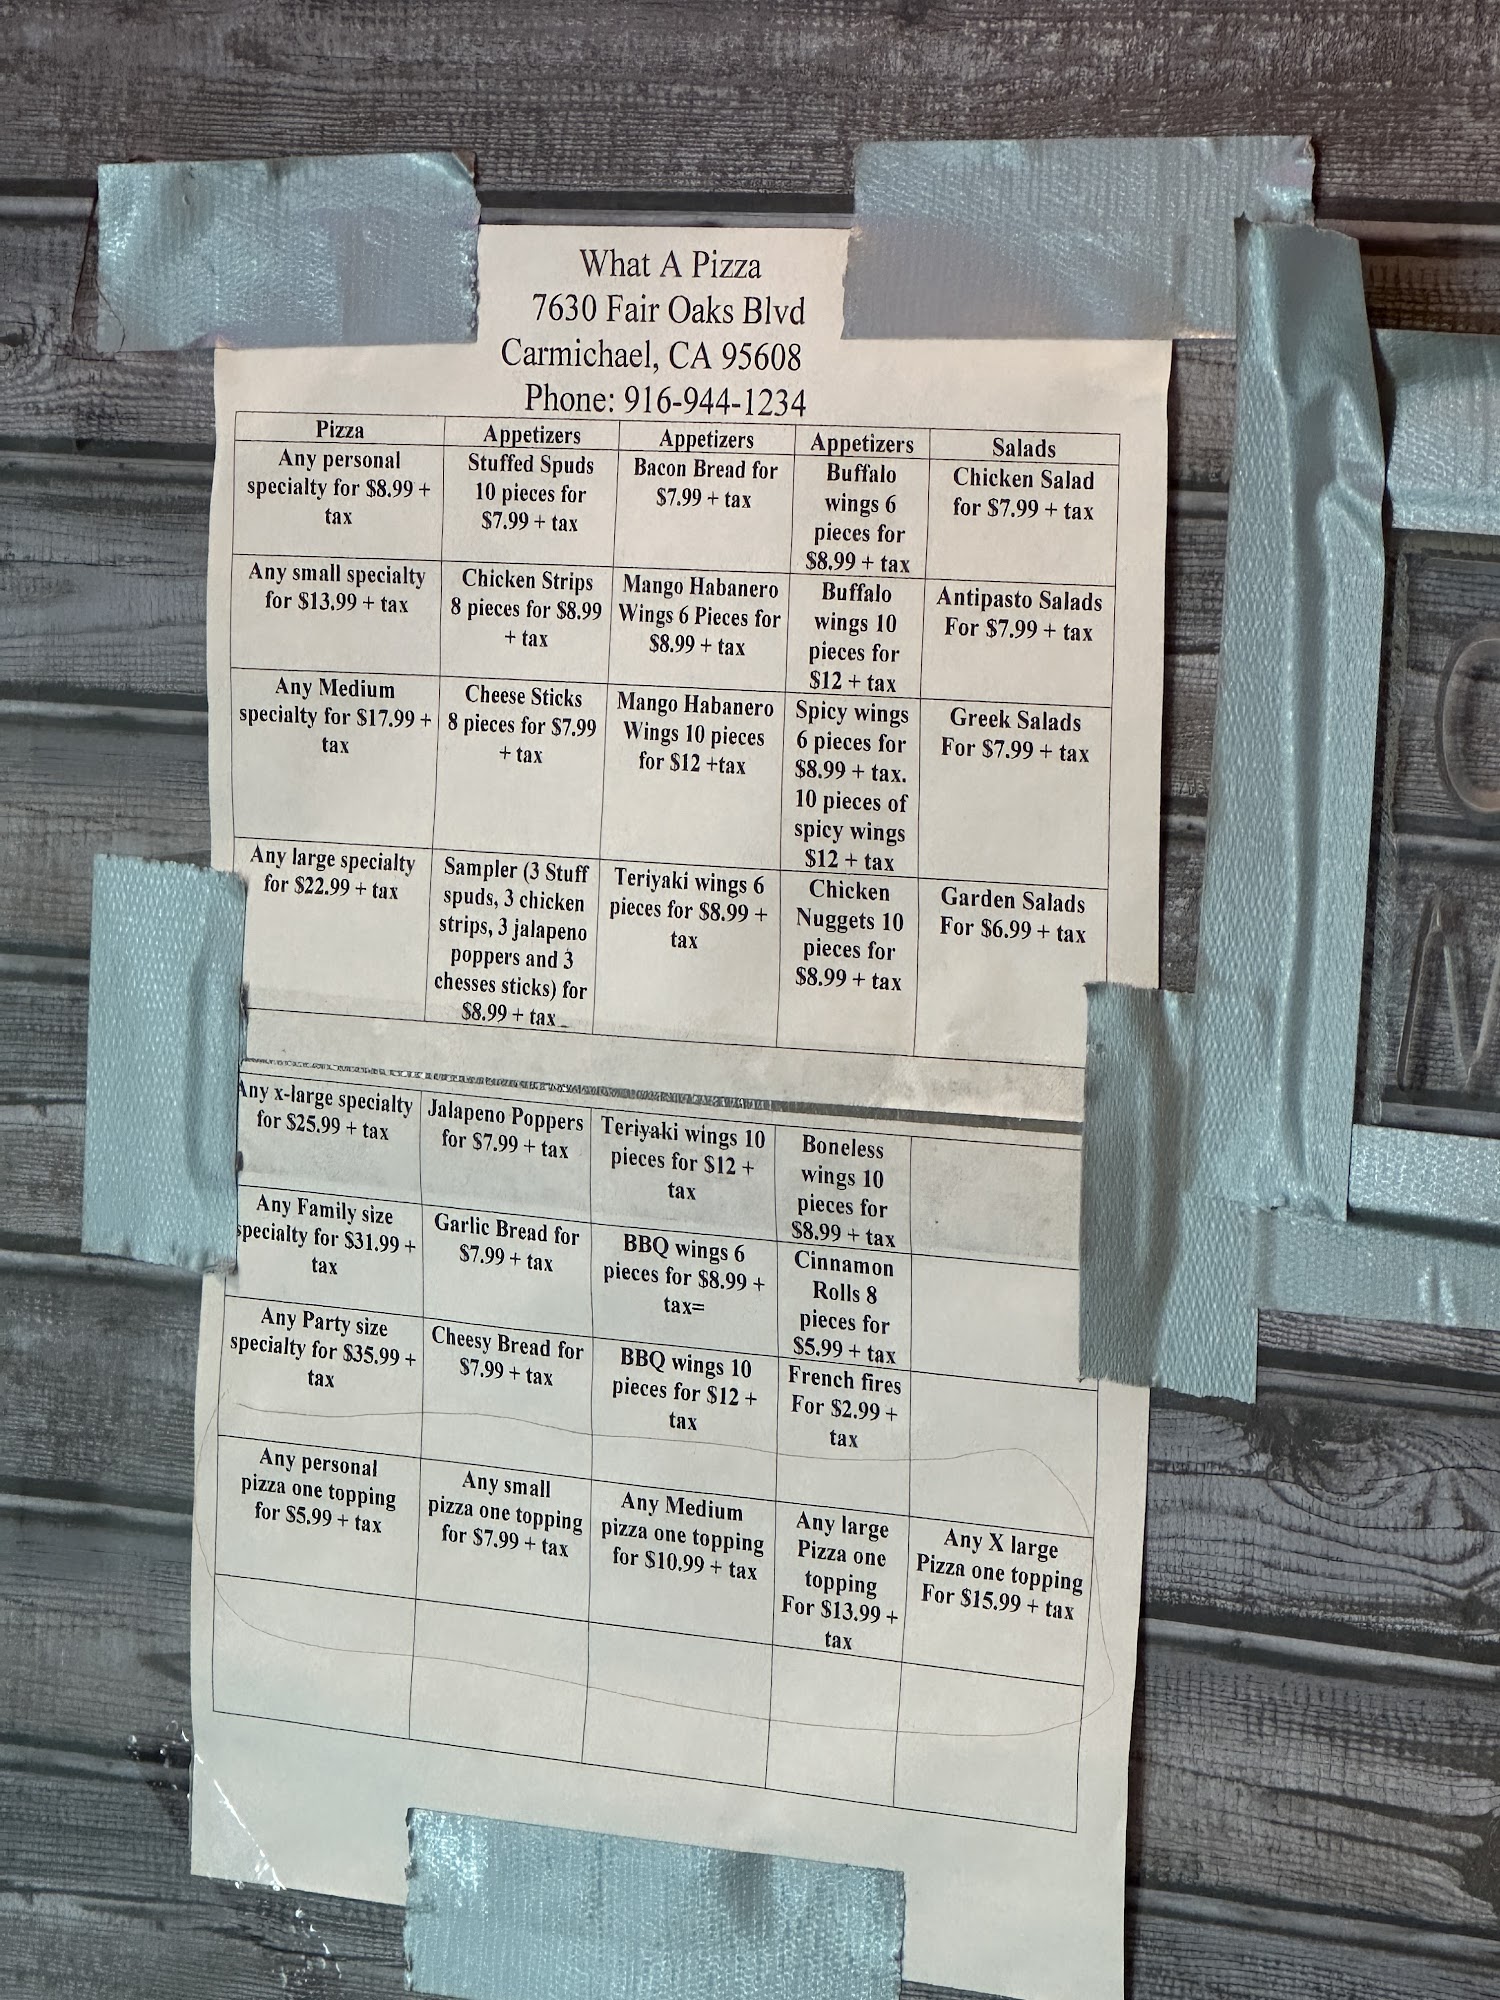 What A Pizza
7630 Fair Oaks Blvd
Carmichael, CA 95608
Phone: 916-944-1234
Pizza
Appetizers
Appetizers
Appetizers
Salads
Any personal
specialty for $8.99 +
tax
Stuffed Spuds
10 pieces for
$7.99 + tax
Bacon Bread for
$7.99 + tax
Buffalo
wings 6
pieces for
$8.99 + tax
Chicken Salad
for $7.99 + tax
Any small specialty
for $13.99 + tax
Chicken Strips
8 pieces for $8.99
+ tax
Mango Habanero
Wings 6 Pieces for
$8.99 + tax
Buffalo
wings 10
pieces for
$12 + tax
Antipasto Salads
For $7.99 + tax
Any Medium
specialty for $17.99 +
tax
Cheese Sticks
8 pieces for $7.99
+ tax
Mango Habanero
Wings 10 pieces
for $12 +tax
Spicy wings
6 pieces for
$8.99 + tax.
10 pieces of
spicy wings
$12 + tax
Greek Salads
For $7.99 + tax
Any large specialty
for $22.99 + tax
Sampler (3 Stuff
spuds, 3 chicken
strips, 3 jalapeno
poppers and 3
chesses sticks) for
$8.99 + tax
Teriyaki wings 6
pieces for $8.99 +
tax
Chicken
Nuggets 10
pieces for
$8.99 + tax
Garden Salads
For $6.99 + tax
Any x-large specialty
for $25.99 + tax
Jalapeno Poppers
for $7.99 + tax
Teriyaki wings 10
pieces for $12 +
tax
Boneless
wings 10
pieces for
$8.99 + tax
Any Family size
specialty for $31.99 +
tax
Garlic Bread for
$7.99 + tax
BBQ wings 6
pieces for $8.99 +
tax=
Cinnamon
Rolls 8
pieces for
$5.99 + tax
Any Party size
specialty for $35.99 +
tax
Cheesy Bread for
$7.99 + tax
BBQ wings 10
pieces for $12 +
tax
French fires
For $2.99 +
tax
Any personal
pizza one topping
for $5.99 + tax
Any small
pizza one topping
for $7.99 + tax
Any Medium
pizza one topping
for $10.99 + tax
Any large
Pizza one
topping
For $13.99 +
tax
Any X large
Pizza one topping
For $15.99 + tax